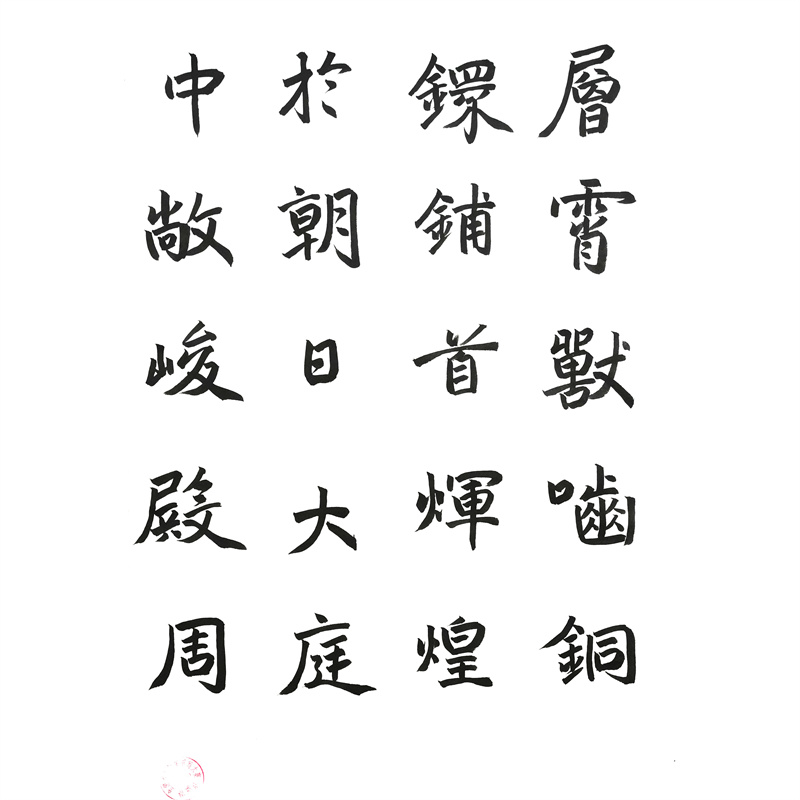 層霄獸嚙銅
鐶鋪首煇煌
於朝日大庭
中敞峻殿周